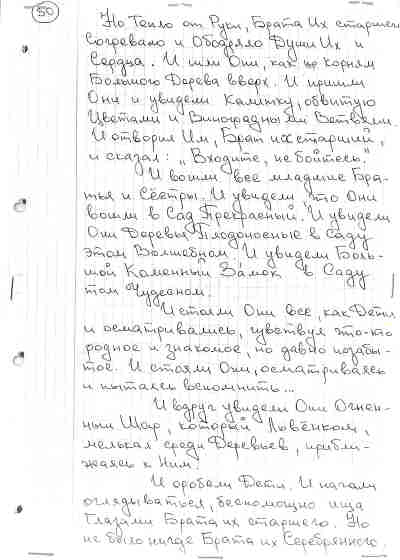 50
Но Тепло от Руки, Брата Их старшего
Согревало и Ободряло Души Их и
Сердца. И шли Они, как по корням
Большого Дерева вверх. И пришли
Они и увидели Калитку, обвитую
Цветами и Виноградными Ветвями.
И отворил Им, Брат их старший,
и сказал: „Входите, не бойтесь."
И вошли все младшие Бра-
тья и Сёстры. И увидели, что Они
вошли в Сад Прекрасный. И увидели
Они Деревья Плодоносные в Саду
этом Волшебном. И увидели Боль-
шой Каменный Замок в Саду
том Чудесном.
И стали Они все, как Дети
и осматривались, чувствуя что-то
родное и знакомое, но давно позабы-
тое. И стояли Они, осматриваясь
и пытаясь вспомнить...
И вдруг увидели Они Огнен-
ный Шар, который Львёнком,
мелькал среди Деревьев, прибли-
жаясь к Ним.
И оробели Дети. И начали
оглядываться, беспомощно ища
Глазами Брата их старшего. Но
не было нигде Брата их Серебряного.